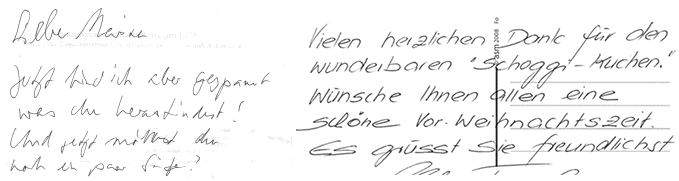 Liebe
Jetzt bin ich aber gespannt
was du herausfindest!
Und jetzt möchtest du
noch ein paar Sätze?
Vielen herzlichen Dank für den
wunderbaren "Schoggi-Kuchen."
Wünsche Ihnen allen eine
schöne Vor. Weihnachtszeit.
Es grüsst Sie freundlichst
asm 2008 Fo